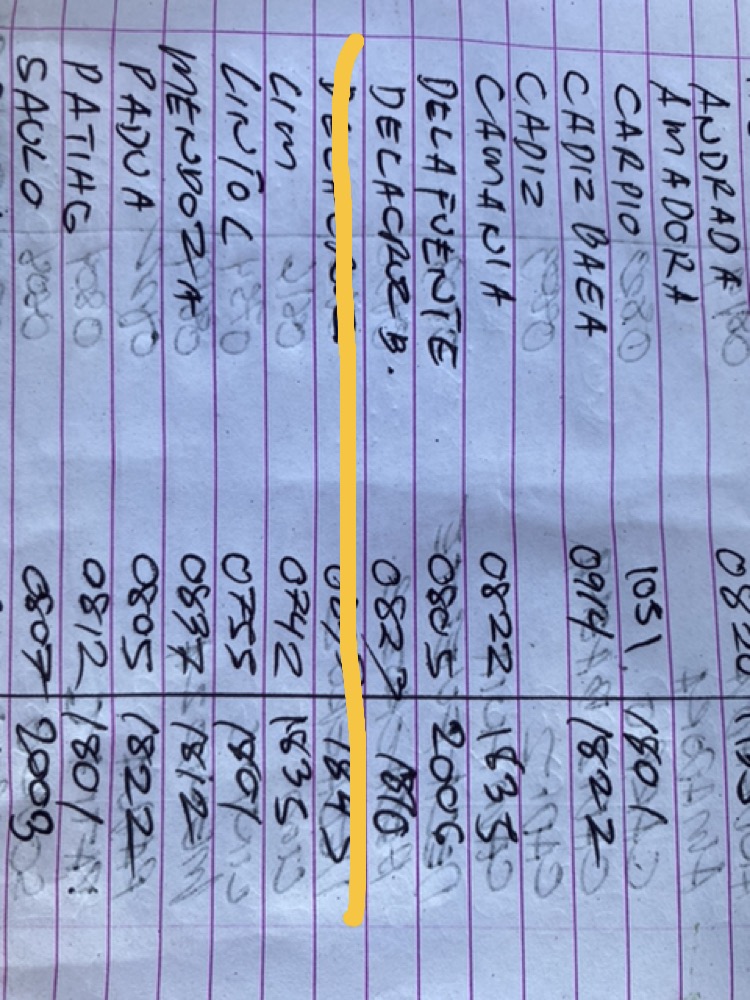 ANDRADA 0820
AMADORA
CARPIO 1031 1801
CADIZ BAEA 0914 1822
CADIZ
CAMANIA 0822 1835
DELAFUENTE 0805 2006
DELACRUZ B. 0827
1843
LIM 0742 1835
LINTOL 0755 1801
MENDOZA 0837 1812
PADUA 0805 1822
PATIAG 0812 1801
SAULO 0807 2003